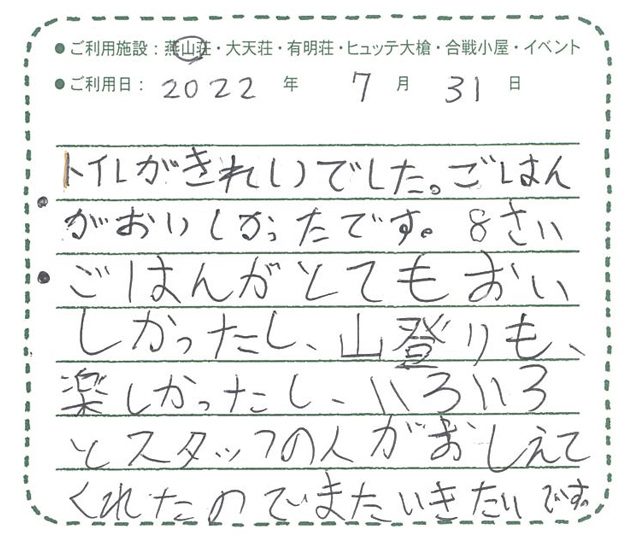 ●ご利用施設：燕山荘・大天荘・有明荘・ヒュッテ大槍・合戦小屋・イベント
●ご利用日：2022年 7月 31日
トイレがきれいでした。ごはん
がおいしかったです。8さい
ごはんがとてもおい
しかったし、山登りも、
楽しかったし、いろいろ
とスタッフの人がおしえて
くれたのでまたいきたいです。